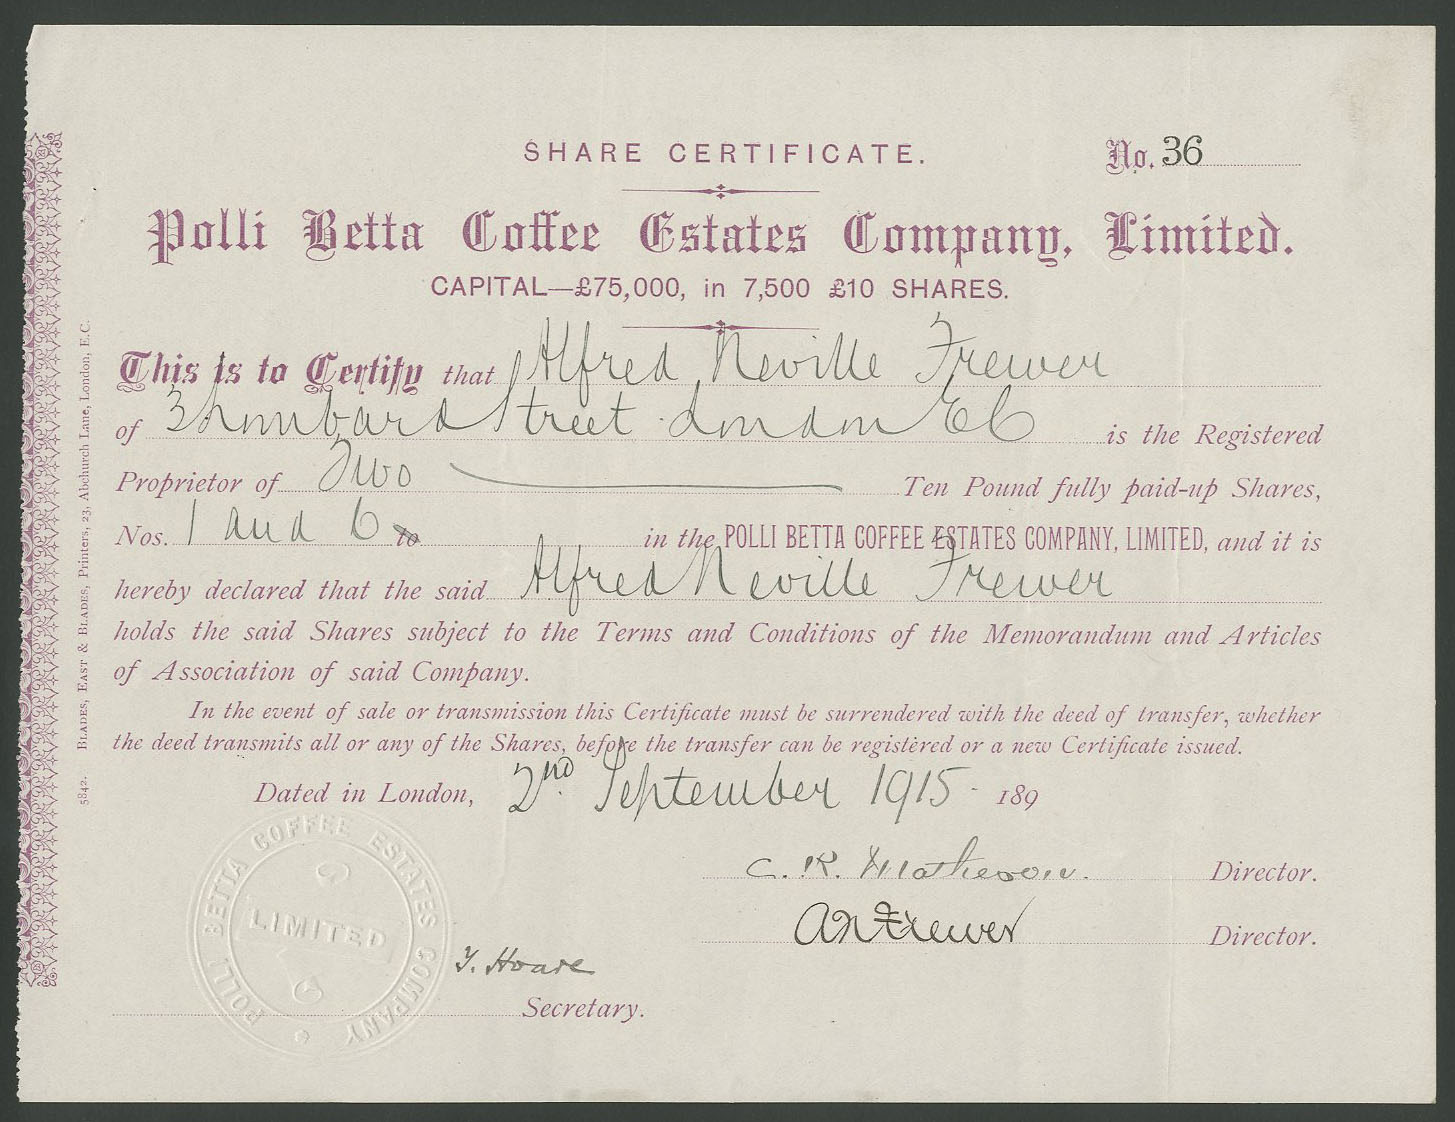 SHARE CERTIFICATE.
No. 36
Polli Betta Coffee Estates Company, Limited.
CAPITAL—£75,000, in 7,500 £10 SHARES.
This is to Certify that Alfred Neville Frewer
of 3 Lombard Street London EC is the Registered
Proprietor of Two Ten Pound fully paid-up Shares,
Nos. 1 and 6 to in the POLLI BETTA COFFEE ESTATES COMPANY, LIMITED, and it is
hereby declared that the said Alfred Neville Frewer
holds the said Shares subject to the Terms and Conditions of the Memorandum and Articles
of Association of said Company.
In the event of sale or transmission this Certificate must be surrendered with the deed of transfer, whether
the deed transmits all or any of the Shares, before the transfer can be registered or a new Certificate issued.
Dated in London, 2nd September 1915 189
C. R. Matheson. Director.
A N Frewer Director.
Y. Hoare
Secretary.
POLLI BETTA COFFEE ESTATES COMPANY
LIMITED
5842. BLADES, EAST & BLADES, Printers, 23, Abchurch Lane, London, E.C.